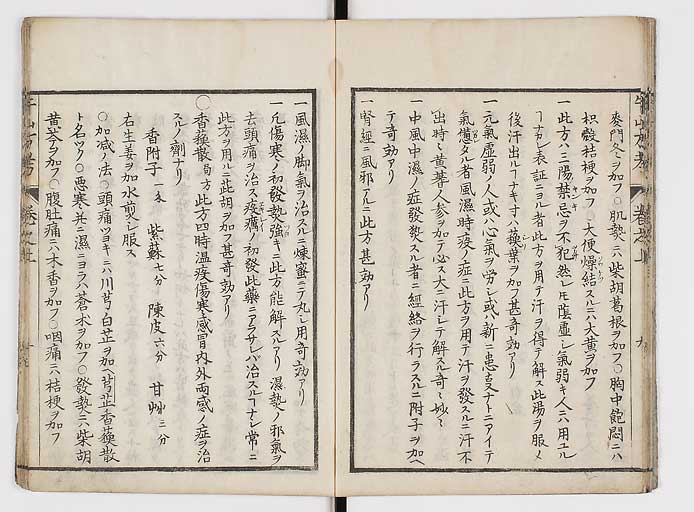 麥門冬ヲ加フ○肌熱ニハ柴胡葛根ヲ加フ○胸中飽悶ニハ
枳殻桔梗ヲ加フ○大便燥結スルニハ大黄ヲ加フ
一此方ハ三陽禁忌ヲ不犯然レ𪜈陰虚シ氣弱キ人ニハ用ユル
ヿナカレ表証ニヨル者此方ヲ用テ汗ヲ得テ解ス此湯ヲ服メ
後汗出ルヿナキ寸ハ蘓葉ヲ加フ甚奇効アリ
一元氣虚弱ノ人或ハ心氣ヲ労シ或ハ新ニ患ナトニアイテ
氣憊タル者風濕時疫ノ症ニ此方ヲ用テ汗ヲ發スルニ汗不
出時ハ黄蓍人参ヲ加テ心ス大ニ汗シテ解スル奇〻妙〻
一中風中濕ノ症發熱スル者ニ經絡ヲ行ラスルニ附子ヲ加ヘ
テ奇効アリ
一腎經ニ風邪アルニ此方甚効アリ
牛山方考 巻之上
一風濕ノ脚氣ヲ治スルニ煉蜜ニテ丸シ用奇効アリ
一凡傷寒ノ初發熱強キニ此方能解スルアリ濕熱ノ邪氣ヲ
去頭痛ヲ治ス疫癘ノ初發此藥ニアラサレハ治スルヿナシ常ニ
此方ヲ用ルニ此胡ヲ加フ甚奇効アリ
○香蘓散 局方 此方四時温疫傷寒感冒内外両感ノ症ヲ治
スルノ劑ナリ
香附子一匁 紫蘇七分 陳皮六分 甘艸三分
右生姜ヲ加水煎シ服ス
○加减ノ法○頭痛ツヨキニハ川芎白芷ヲ加ヘ芎芷香蘓散
ト名ツク○悪寒并ニ濕ニヨラハ蒼朮ヲ加フ○發熱ニハ柴胡
黄芩ヲ加フ○腹肚痛ニハ木香ヲ加フ○咽痛ニハ桔梗ヲ加フ